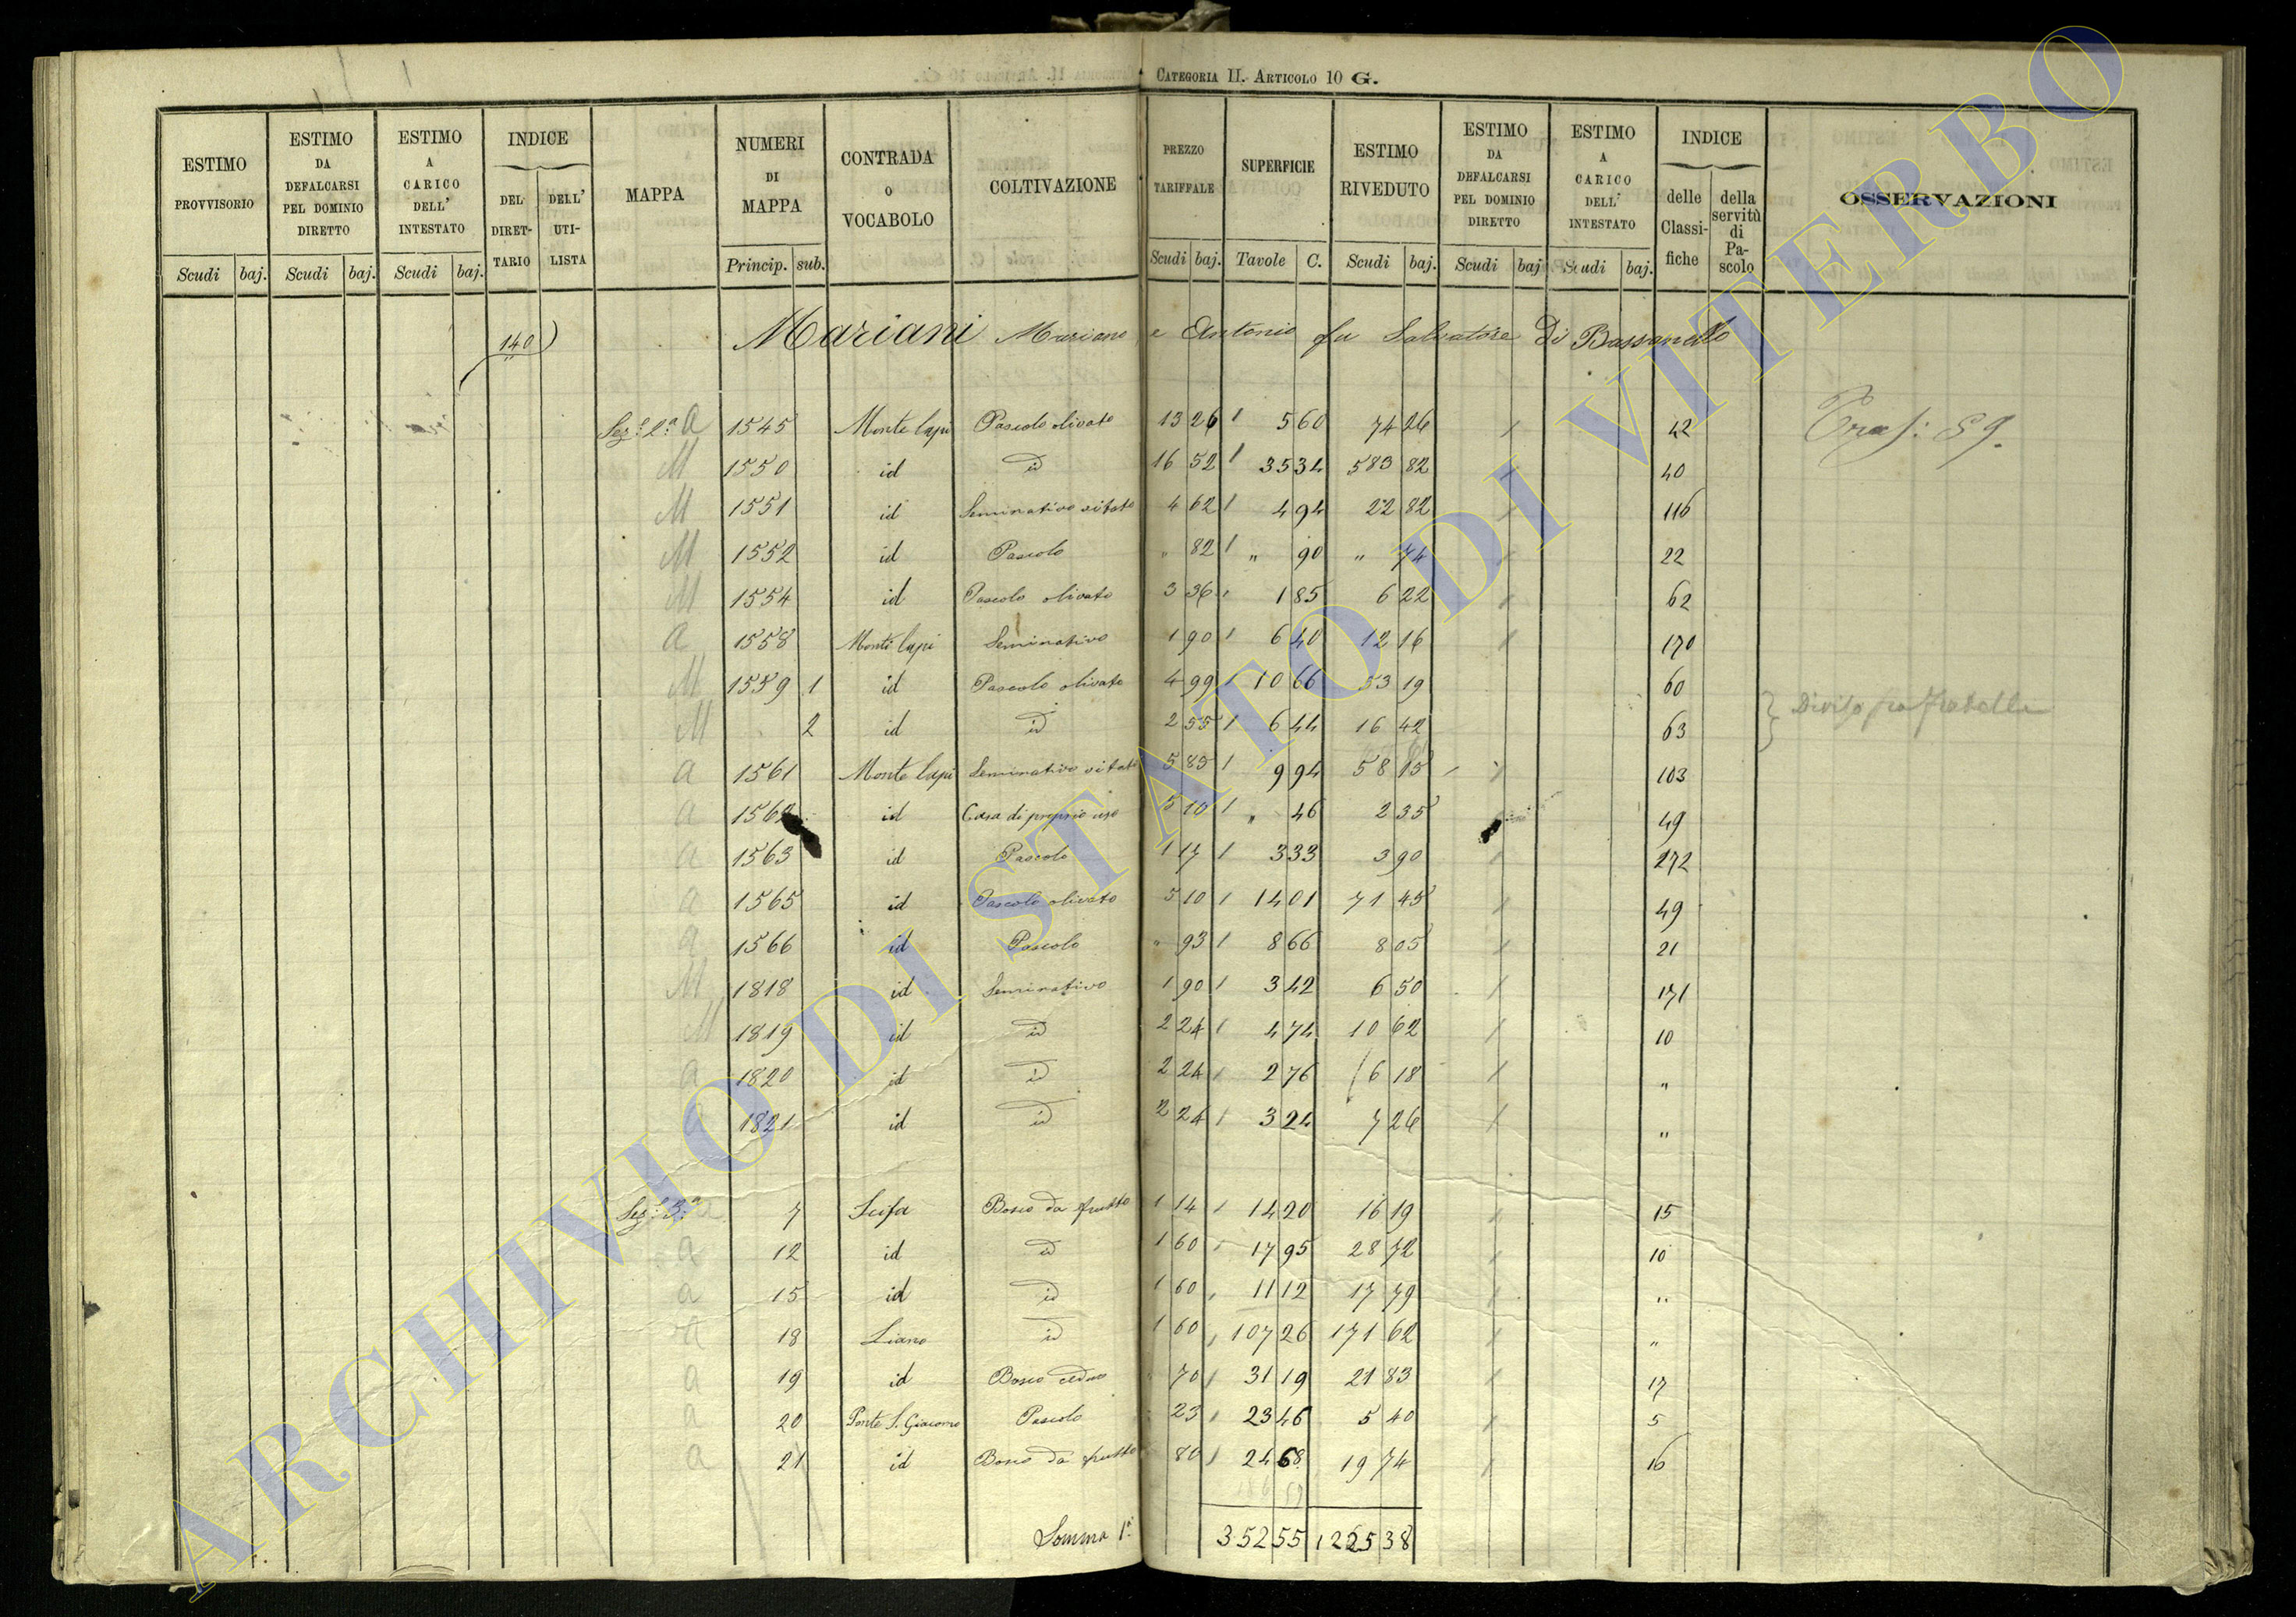 CATEGORIA II. ARTICOLO 10 G.
ESTIMO PROVVISORIO | ESTIMO DA DEFALCARSI PEL DOMINIO DIRETTO | ESTIMO A CARICO DELL' INTESTATO | INDICE | MAPPA | NUMERI DI MAPPA | CONTRADA O VOCABOLO | COLTIVAZIONE | PREZZO TARIFFALE | SUPERFICIE | ESTIMO RIVEDUTO | ESTIMO DA DEFALCARSI PEL DOMINIO DIRETTO | ESTIMO A CARICO DELL' INTESTATO | INDICE | OSSERVAZIONI
DEL DIRETTARIO | DELL' UTILISTA | delle Classifiche | della servitù di Pascolo
Scudi | baj. | Scudi | baj. | Scudi | baj. | Princip. | sub. | Scudi | baj. | Tavole | C. | Scudi | baj. | Scudi | baj | Scudi | baj.
140) Mariani Mariano e Antonio fu Salvatore Di Bassanello
Sez: 2ª a 1545 Monte lapi Pascolo olivato 13 26 5 60 74 26 42
M 1550 id id 16 52 35 34 583 82 40
M 1551 id Seminativo vitato 4 62 4 94 22 82 116
M 1552 id Pascolo " 82 " 90 " 74 22
M 1554 id Pascolo olivato 3 36 1 85 6 22 62
a 1558 Monte lapi Seminativo 1 90 6 40 12 16 170
M 1559 1 id Pascolo olivato 4 99 10 66 53 19 60
M 2 id id 2 55 6 44 16 42 63 } Diviso fra fratelli
a 1561 Monte lapi Seminativo vitato 5 85 9 94 58 15 103
a 1562 id Casa di proprio uso 5 10 " 46 2 35 49
a 1563 id Pascolo 1 17 3 33 3 90 272
a 1565 id Pascolo olivato 5 10 14 01 71 45 49
a 1566 id Pascolo " 93 8 66 8 05 21
M 1818 id Seminativo 1 90 3 42 6 50 171
M 1819 id id 2 24 4 74 10 62 10
a 1820 id id 2 24 2 76 6 18 "
a 1821 id id 2 24 3 24 7 26 "
Sez: 3ª 7 Scifa Bosco da frutto 1 14 14 20 16 19 15
a 12 id id 1 60 17 95 28 72 10
a 15 id id 1 60 11 12 17 79 "
a 18 Liano id 1 60 107 26 171 62 "
a 19 id Bosco ceduo 70 31 19 21 83 17
a 20 Ponte S. Giacomo Pascolo 23 23 46 5 40 5
a 21 id Bosco da frutto 80 24 68 19 74 16
Somma 1ª 352 55 1225 38
ARCHIVIO DI STATO DI VITERBO